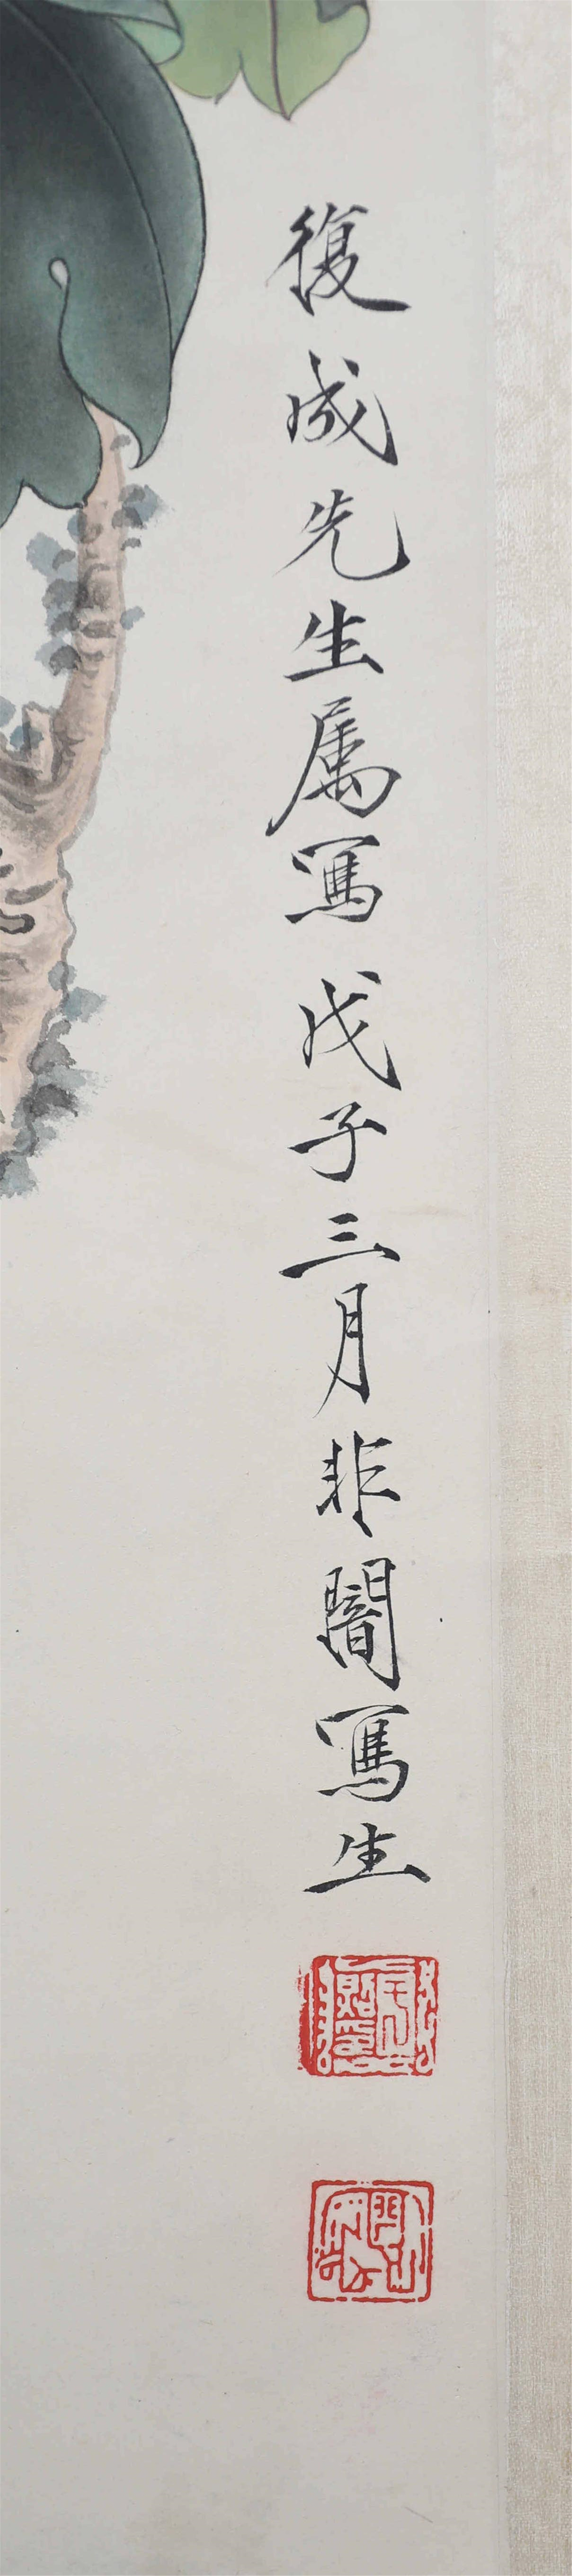 復成先生属寫 戊子三月非闇寫生